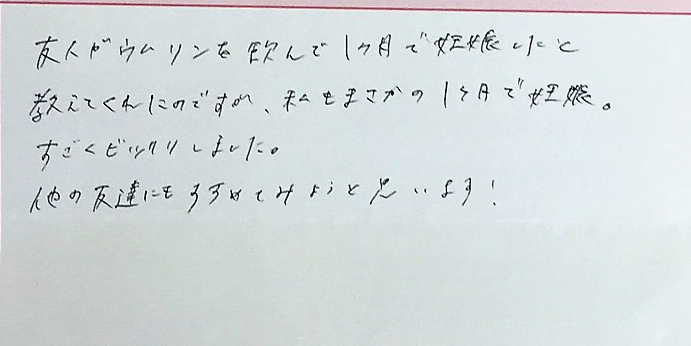 友人がウムリンを飲んで1ヶ月で妊娠したと
教えてくれたのですが、私もまさかの1ヶ月で妊娠。
すごくビックリしました。
他の友達にもすすめてみようと思います!